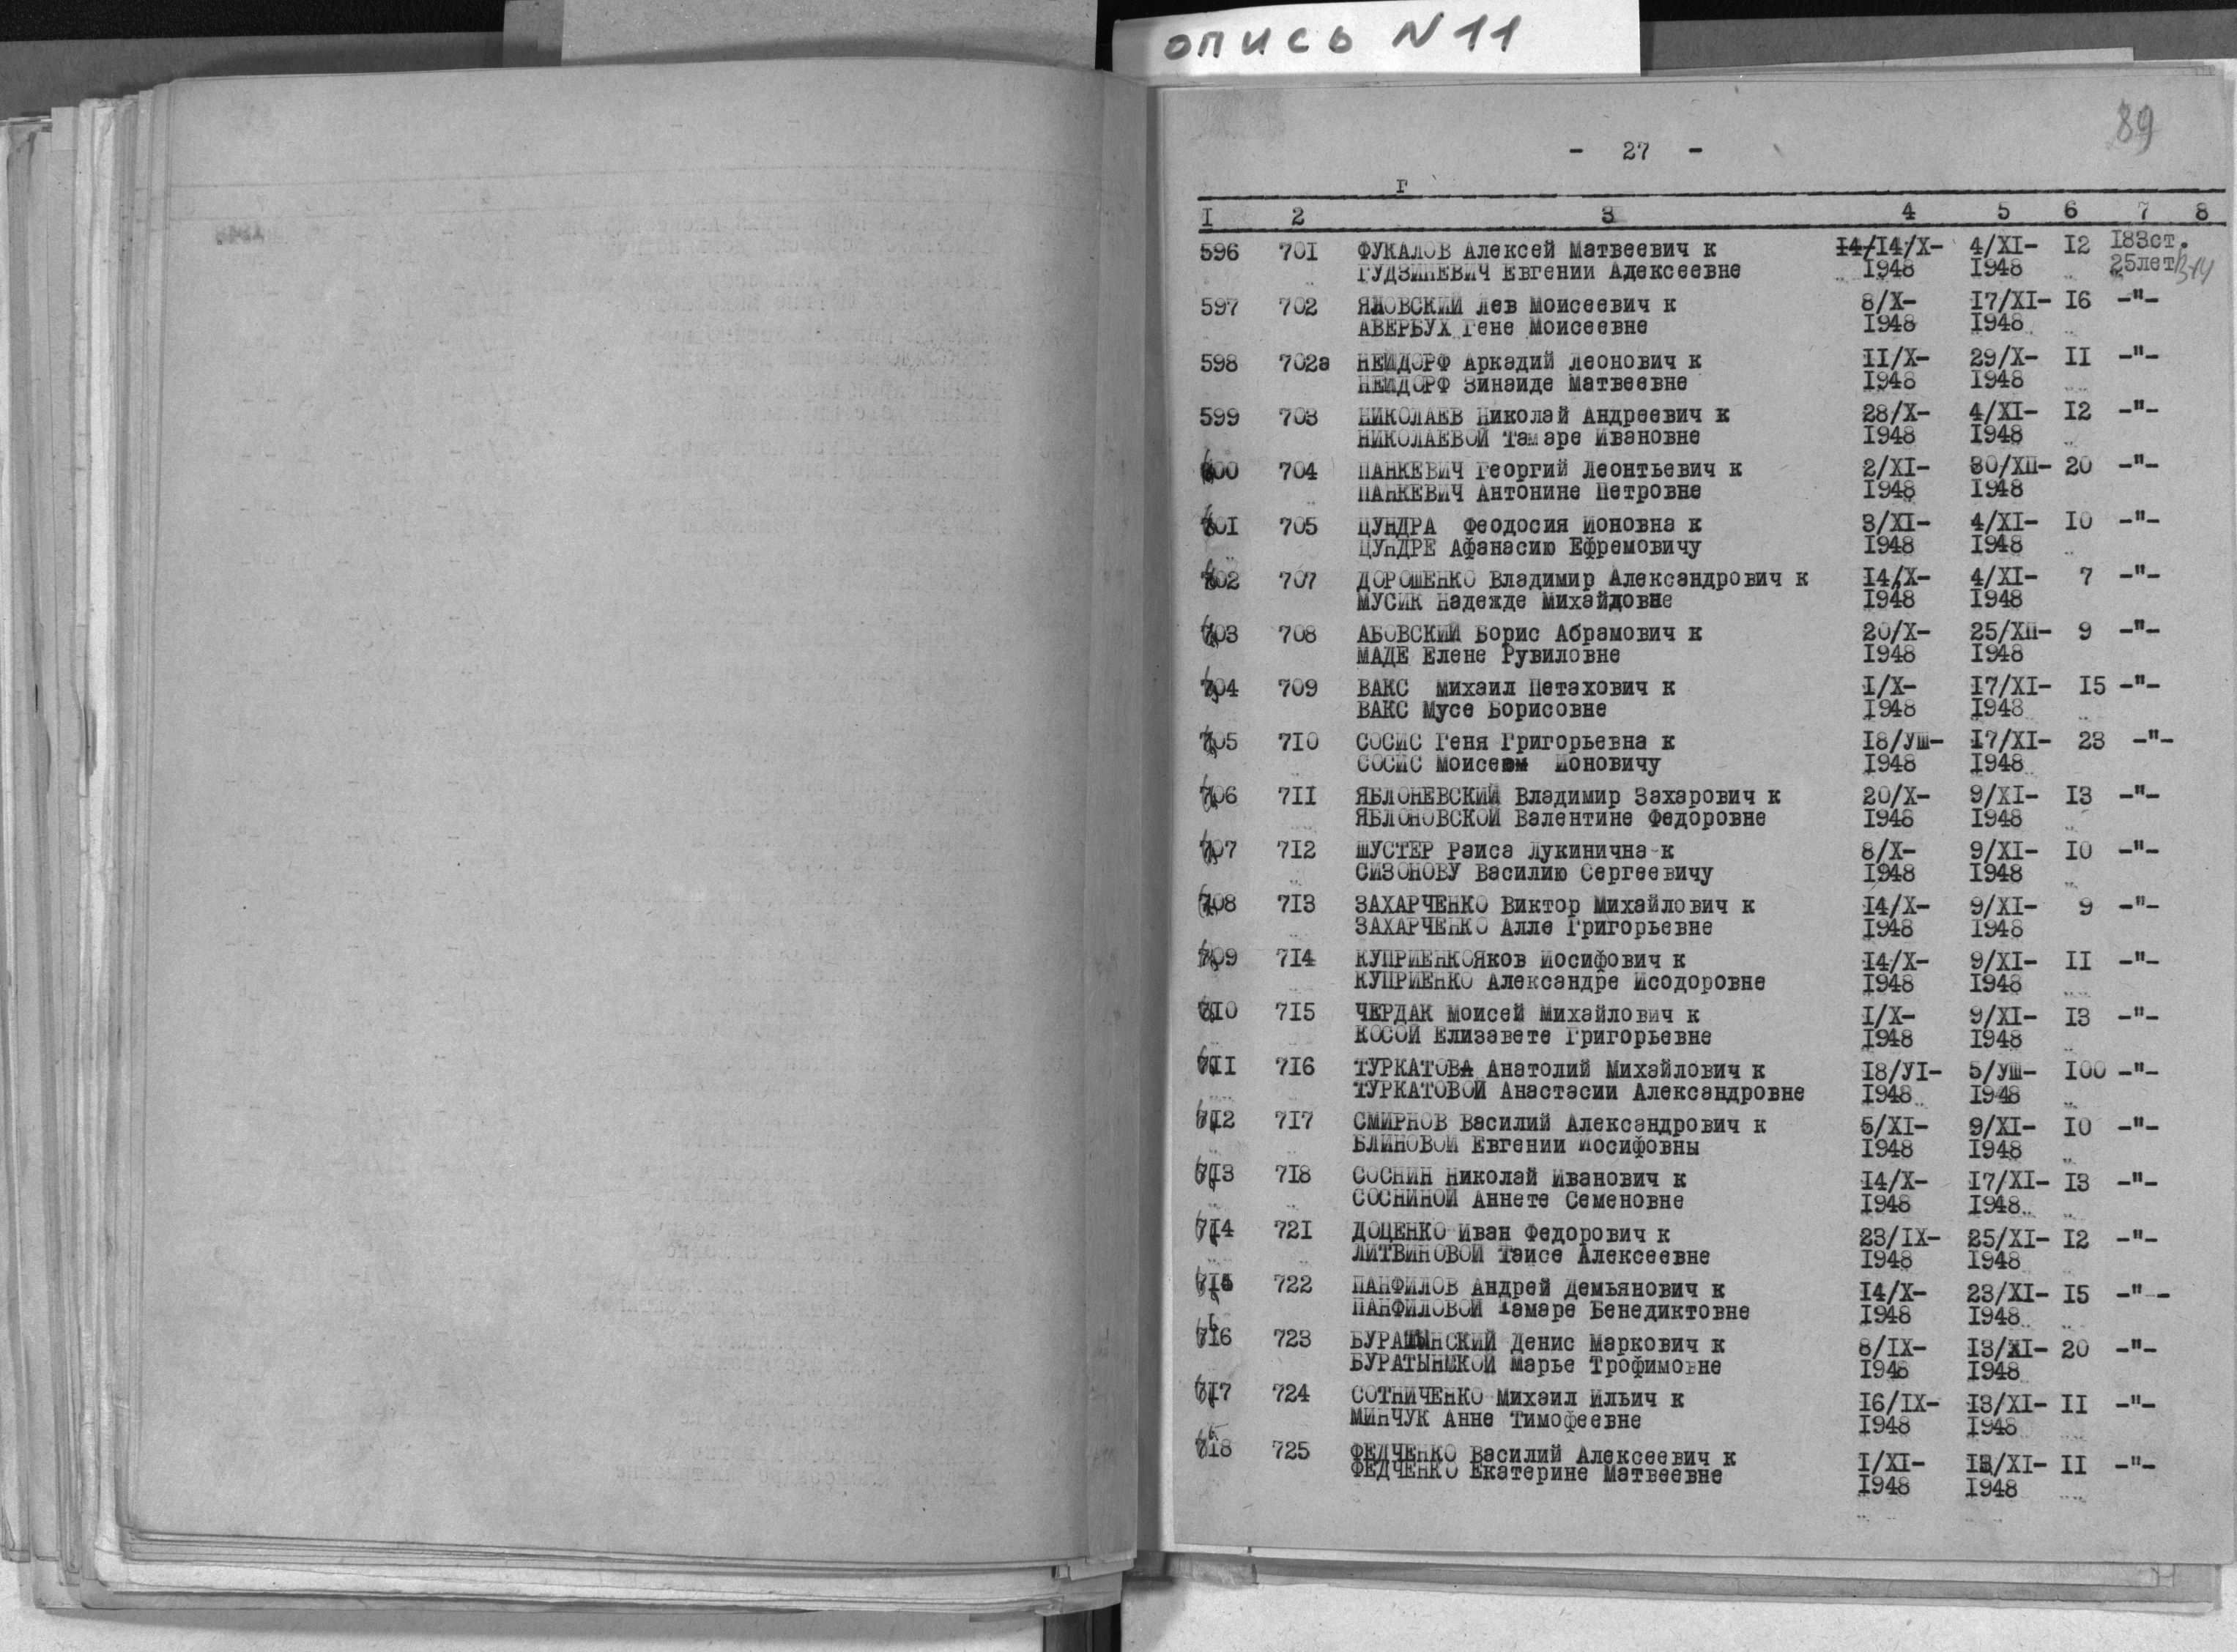 опись N 11
89
- 27 -
г
I 2 3 4 5 6 7 8
596 70I ФУКАЛОВ Алексей Матвеевич к I4/I4/X- 4/XI- I2 I83ст.
ГУДЗИНЕВИЧ Евгении Алексеевне I948 I948 25лет
597 702 ЯЛОВСКИЙ Лев Моисеевич к 8/X- I7/XI- I6 -"-
АВЕРБУХ Гене Моисеевне I948 I948
598 702а НЕЙДОРФ Аркадий Леонович к II/X- 29/X- II -"-
НЕЙДОРФ Зинаиде Матвеевне I948 I948
599 703 НИКОЛАЕВ Николай Андреевич к 28/X- 4/XI- I2 -"-
НИКОЛАЕВОЙ Тамаре Ивановне I948 I948
600 704 ПАНКЕВИЧ Георгий Леонтьевич к 2/XI- 30/XII- 20 -"-
ПАНКЕВИЧ Антонине Петровне I948 I948
60I 705 ЦУНДРА Феодосия Ионовна к 3/XI- 4/XI- I0 -"-
ЦУНДРЕ Афанасию Ефремовичу I948 I948
602 707 ДОРОШЕНКО Владимир Александрович к I4/X- 4/XI- 7 -"-
МУСИК Надежде Михайловне I948 I948
603 708 АБОВСКИЙ Борис Абрамович к 20/X- 25/XII- 9 -"-
МАДЕ Елене Рувиловне I948 I948
604 709 ВАКС Михаил Петахович к I/X- I7/XI- I5 -"-
ВАКС Мусе Борисовне I948 I948
605 7I0 СОСИС Геня Григорьевна к I8/УШ- I7/XI- 23 -"-
СОСИС Моисею Ионовичу I948 I948
606 7II ЯБЛОНЕВСКИЙ Владимир Захарович к 20/X- 9/XI- I3 -"-
ЯБЛОНОВСКОЙ Валентине Федоровне I948 I948
607 7I2 ШУСТЕР Раиса Лукинична к 8/X- 9/XI- I0 -"-
СИЗОНОВУ Василию Сергеевичу I948 I948
608 7I3 ЗАХАРЧЕНКО Виктор Михайлович к I4/X- 9/XI- 9 -"-
ЗАХАРЧЕНКО Алле Григорьевне I948 I948
609 7I4 КУПРИЕНКОЯков Иосифович к I4/X- 9/XI- II -"-
КУПРИЕНКО Александре Исодоровне I948 I948
6I0 7I5 ЧЕРДАК Моисей Михайлович к I/X- 9/XI- I3 -"-
КОСОЙ Елизавете Григорьевне I948 I948
6II 7I6 ТУРКАТОВА Анатолий Михайлович к I8/УI- 5/УШ- I00 -"-
ТУРКАТОВОЙ Анастасии Александровне I948 I948
6I2 7I7 СМИРНОВ Василий Александрович к 5/XI- 9/XI- I0 -"-
БЛИНОВОЙ Евгении Иосифовны I948 I948
6I3 7I8 СОСНИН Николай Иванович к I4/X- I7/XI- I3 -"-
СОСНИНОЙ Аннете Семеновне I948 I948
6I4 72I ДОЦЕНКО Иван Федорович к 23/IX- 25/XI- I2 -"-
ЛИТВИНОВОЙ Таисе Алексеевне I948 I948
6I5 722 ПАНФИЛОВ Андрей Демьянович к I4/X- 23/XI- I5 -"-
ПАНФИЛОВОЙ Тамаре Бенедиктовне I948 I948
6I6 723 БУРАТЫНСКИЙ Денис Маркович к 8/IX- I3/XI- 20 -"-
БУРАТЫНСКОЙ Марье Трофимовне I948 I948
6I7 724 СОТНИЧЕНКО Михаил Ильич к I6/IX- I3/XI- II -"-
МИНЧУК Анне Тимофеевне I948 I948
6I8 725 ФЕДЧЕНКО Василий Алексеевич к I/XI- I3/XI- II -"-
ФЕДЧЕНКО Екатерине Матвеевне I948 I948